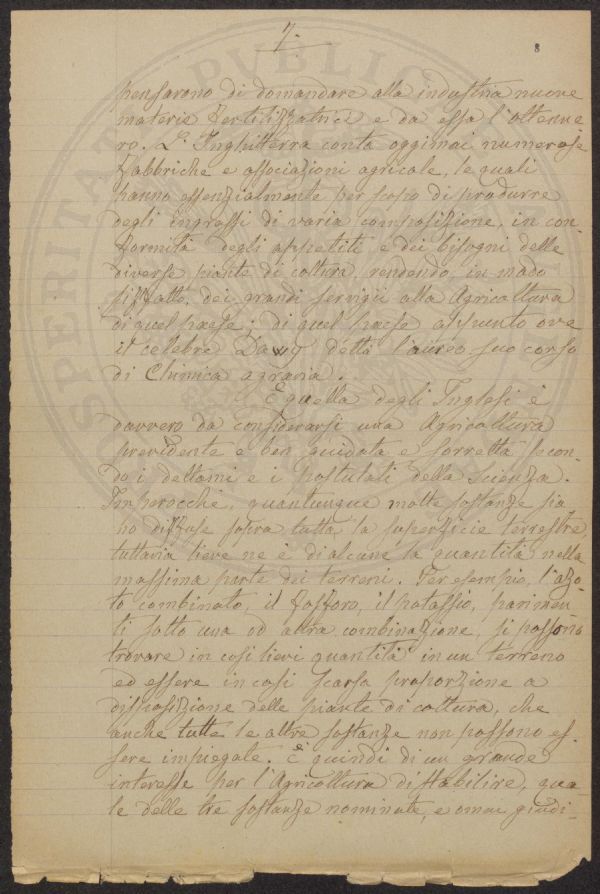 7.
8
pensarono di domandare alla industria nuove
materie fertilizzatrici e da essa l'ottenne
ro. L'Inghilterra conta oggimai numerose
fabbriche e associazioni agricole, le quali
hanno essenzialmente per scopo di produrre
degli ingrassi di varia composizione, in con-
formità degli appetiti e dei bisogni delle
diverse piante di coltura, rendendo, in modo
siffatto, dei grandi servigii alla Agricoltura
di quel paese; di quel paese appunto ove
il celebre Davy detta l'aureo suo corso
di Chimica agraria.
E quella degli Inglesi è
davvero da considerarsi una Agricoltura
previdente e ben guidata e sorretta secon
do i dettami e i postulati della Scienza.
Imperocchè, quantunque molte sostanze sia
no diffuse sopra tutta la superficie terrestre,
tuttavia lieve ne è di alcune la quantità nella
massima parte dei terreni. Per esempio, l'azo-
to combinato, il fosforo, il potassio, parimen
ti sotto una od altra combinazione, si possono
trovare in così lievi quantità in un terreno
ed essere in così scarsa proporzione a
disposizione delle piante di coltura, che
anche tutte le altre sostanze non possono es
sere impiegate. È quindi di un grande
interesse per l'Agricoltura di stabilire, qua
le delle tre sostanze nominate, e omai giudi-
PUBLIC
PROSPERITATI